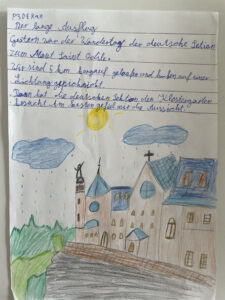 Der lange Ausflug
Gestern war der Wandertag der deutsche Sektion
zum Mont Saint Odile.
Wir sind 5 km bergauf gelaufen und haben auf einer
Lichtung gepicknickt.
Dann hat die deutschen Sektion den "Klostergarten"
besucht. Am besten gefiel mir die Aussicht.